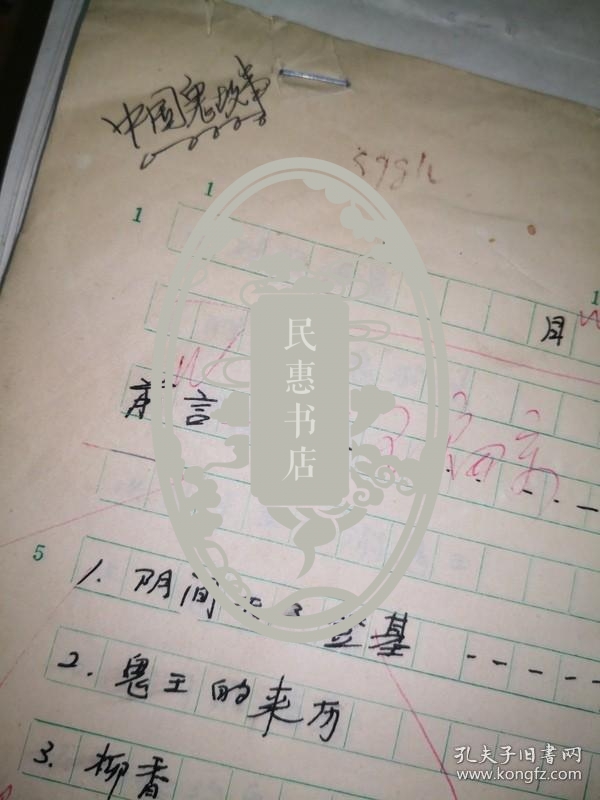 中国鬼故事
1
1
1
目
民惠书店
序言
5
1. 阴间 登基 -----
2. 鬼王的来历
3. 柳香
孔夫子旧书网
www.kongfz.com